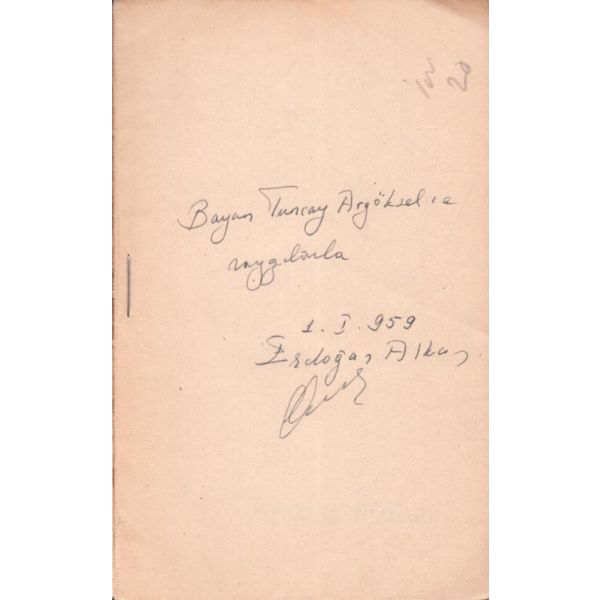 20
Bayan Tuncay Argöksel'e
saygılarla
1. I. 959
Erdoğan Alkan